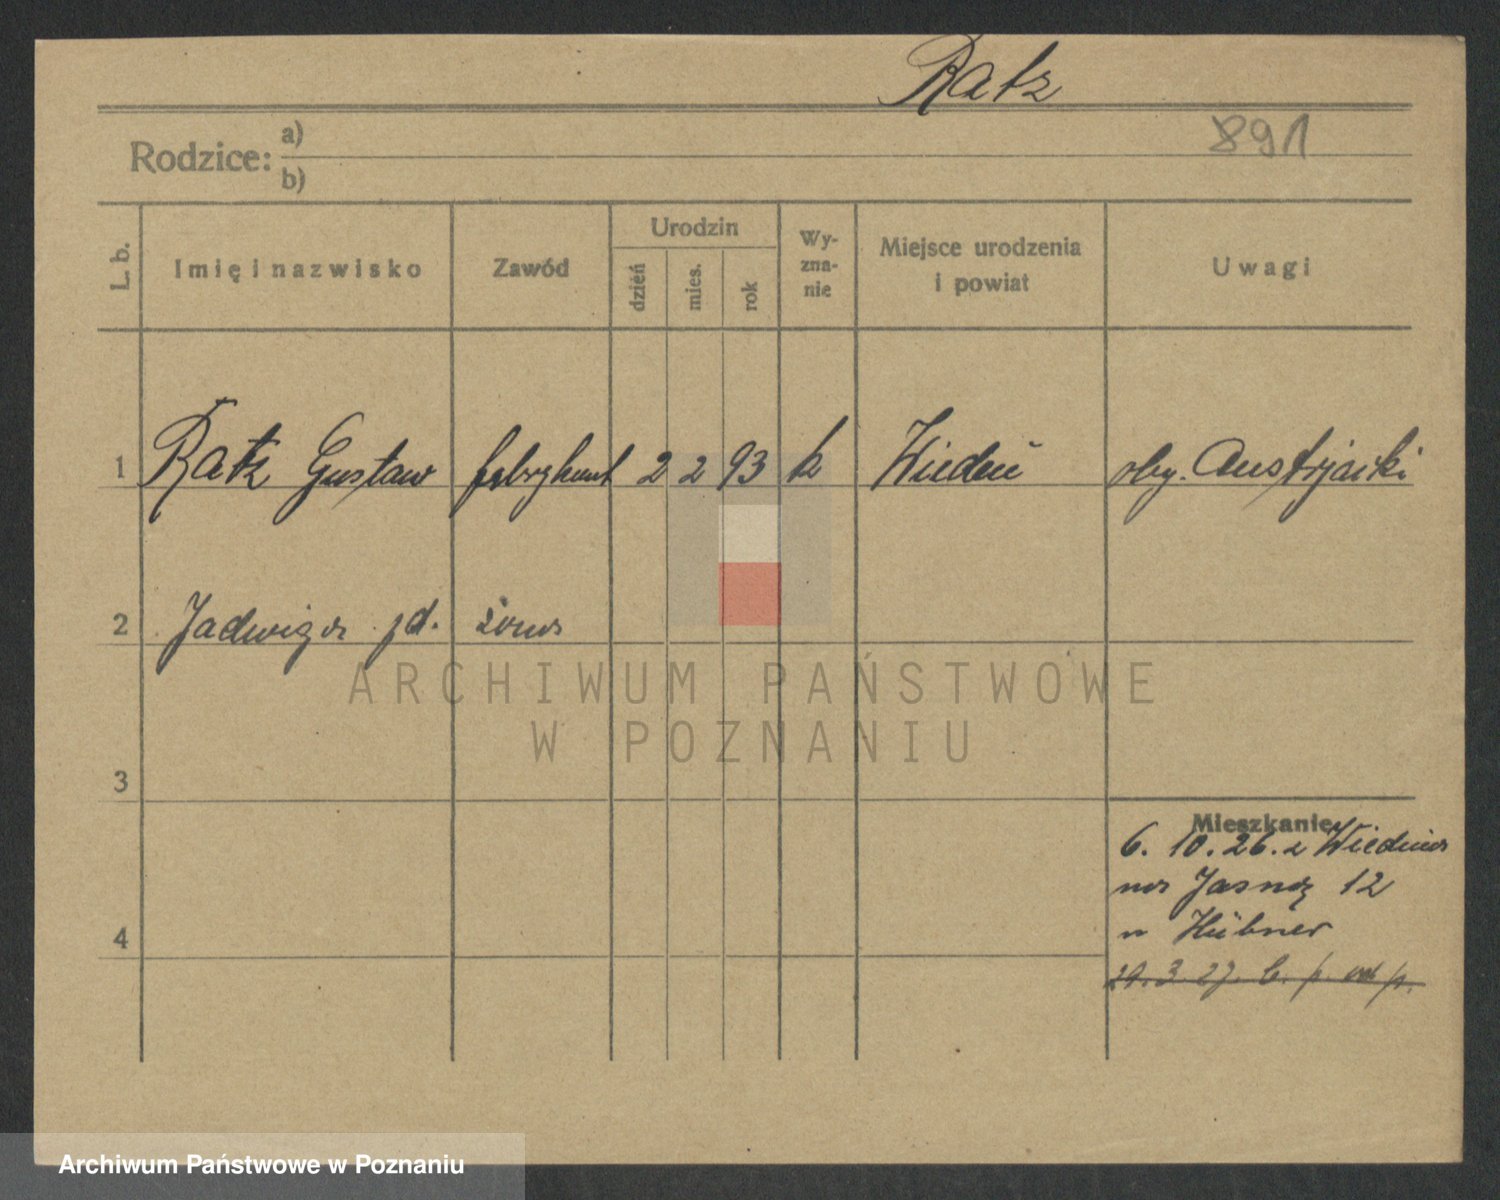 Ratz
891
Rodzice: a)
b)
L. b. Imię i nazwisko Zawód Urodzin dzień mies. rok Wy-zna-nie Miejsce urodzenia i powiat Uwagi
1 Ratz Gustaw fabrykant 2 2 93 k Wiedeń oby. Austrjacki
2 Jadwiga jd. żona
3
Mieszkanie
6. 10. 26. z Wiednia
na Jasną 12
u Hübner
4
29. 3. 27. p. p.
ARCHIWUM PAŃSTWOWE
W POZNANIU
Archiwum Państwowe w Poznaniu